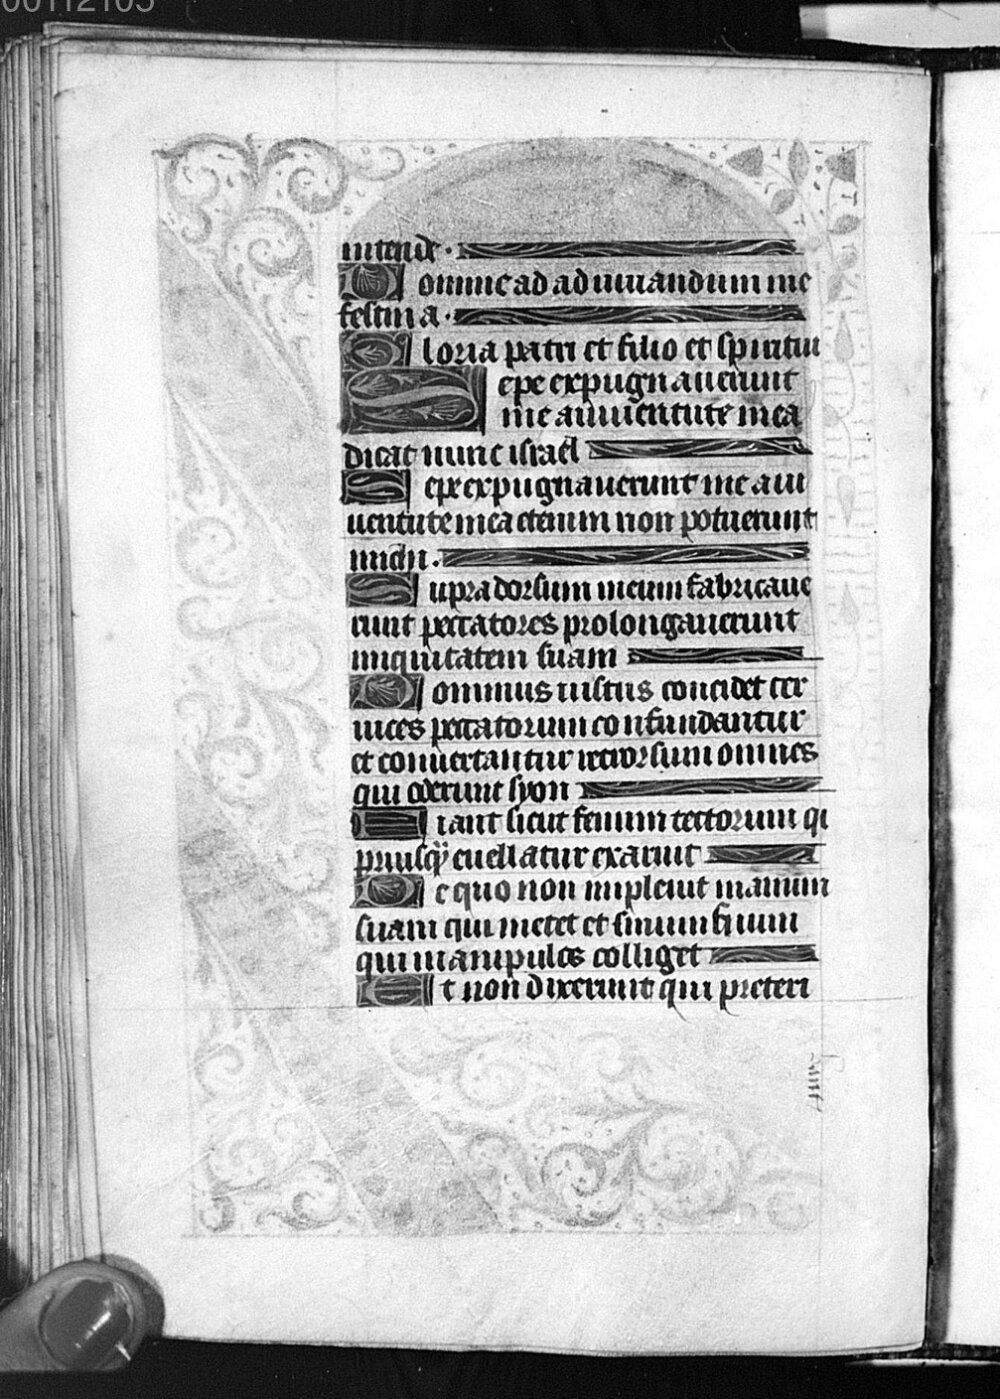 00112103
intende ·
Domine ad adiuuandum me
festina ·
Gloria patri et filio et spiritui
Sepe expugnauerunt
me a iuuentute mea
dicat nunc israel
Sepe expugnauerunt me a iu
uentute mea etenim non potuerunt
michi ·
Supra dorsum meum fabricaue
runt peccatores prolongauerunt
iniquitatem suam
Dominus iustus concidet cer
uices peccatorum confundantur
et conuertantur retrorsum omnes
qui oderunt syon
Fiant sicut fenum tectorum qd
priusq̄ euellatur exaruit
De quo non impleuit manum
suam qui metet et sinum suum
qui manipulos colliget
Et non dixerunt qui preteri